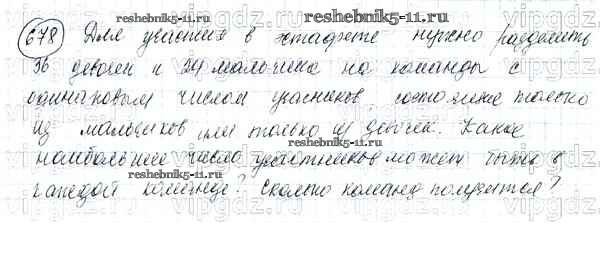 reshebnik5-11.ru
678 Для участия в эстафете нужно разделить
36 девочек и 24 мальчика на команды с
одинаковым числом участников, состоящие только
из мальчиков или только из девочек. Какое
наибольшее число участников может быть в
reshebnik5-11.ru
каждой команде? Сколько команд получится?
reshebnik5-11.ru
vipgdz.ru vipgdz.ru vipgdz.ru